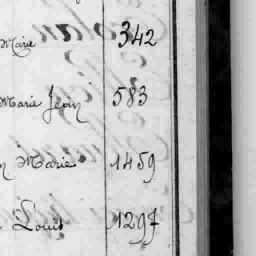 Marie 342
Marie Jean 583
n Marie 1459
Louis 1297